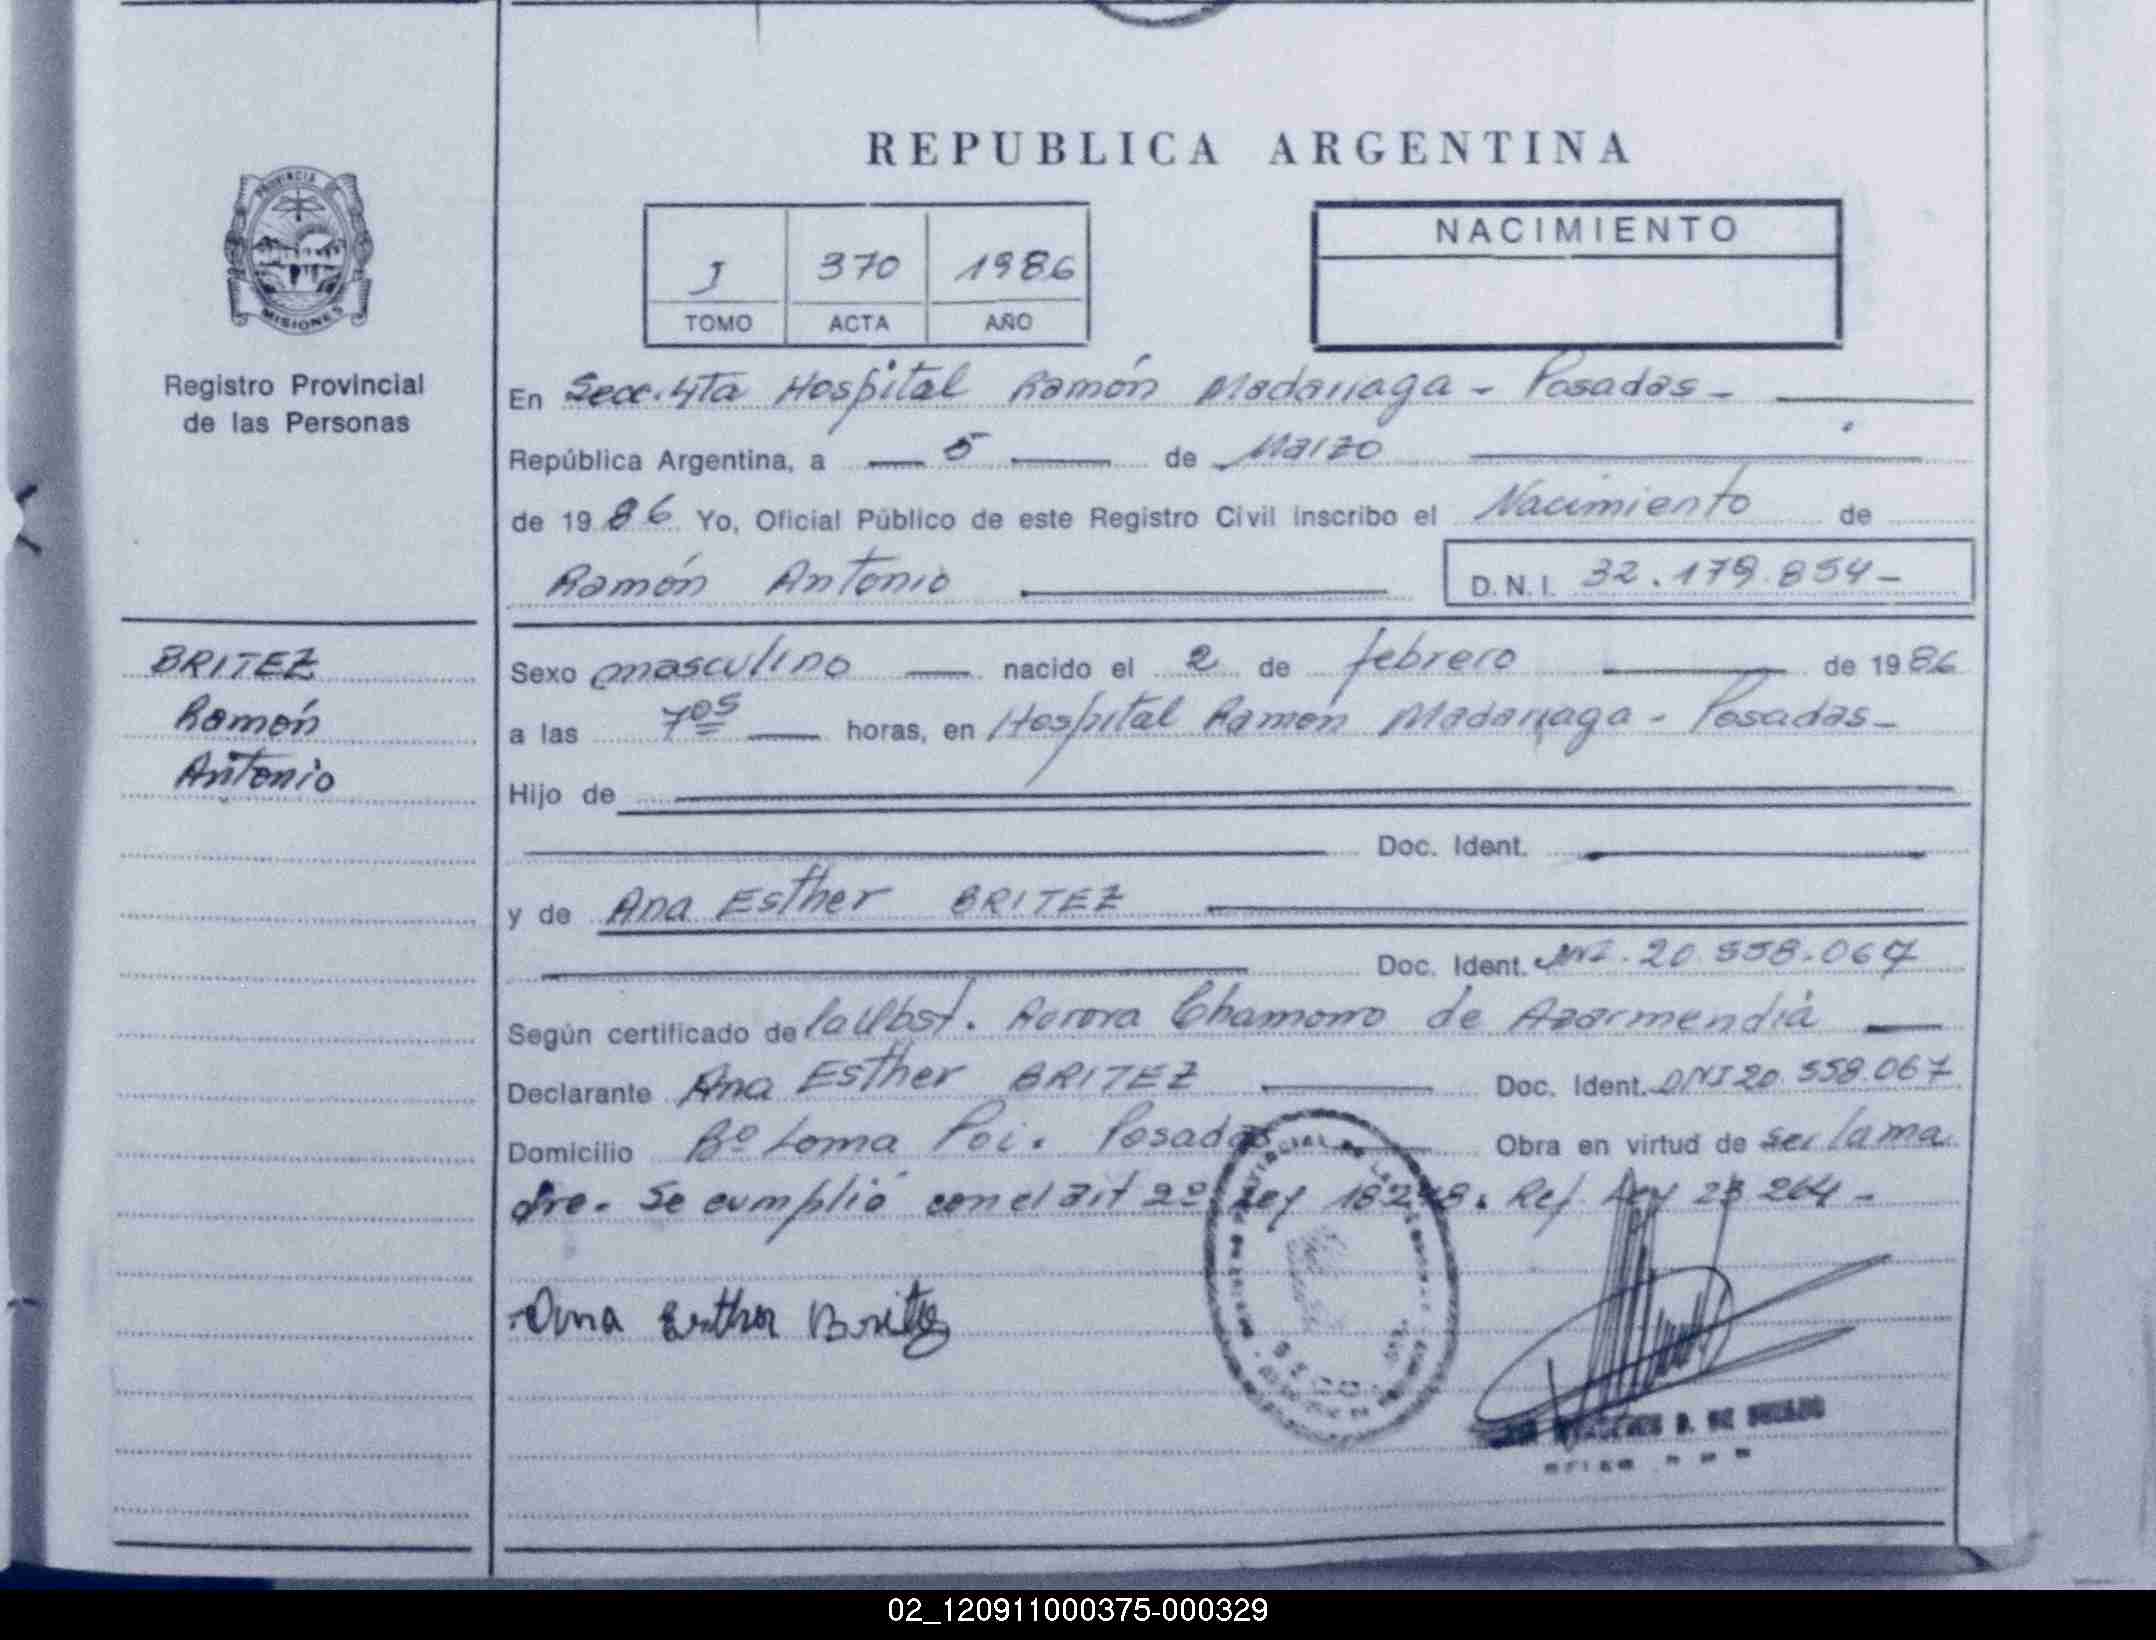 REPUBLICA ARGENTINA
PROVINCIA DE
MISIONES
Registro Provincial
de las Personas
J 370 1986
TOMO ACTA AÑO
NACIMIENTO
En Secc. 4ta Hospital Ramón Madariaga - Posadas -
República Argentina, a 5 de Marzo
de 1986 Yo, Oficial Público de este Registro Civil inscribo el Nacimiento de
Ramón Antonio D.N.I. 32.179.854-
BRITEZ
Ramón
Antonio
Sexo masculino nacido el 2 de febrero de 1986
a las 7 05 horas, en Hospital Ramón Madariaga - Posadas -
Hijo de
Doc. Ident.
y de Ana Esther BRITEZ
Doc. Ident. DNI. 20.558.067
Según certificado de la Obst. Aurora Chamorro de Azarmendia
Declarante Ana Esther BRITEZ Doc. Ident. DNI 20.558.067
Domicilio Bº Loma Poi. Posadas Obra en virtud de ser la ma
dre. Se cumplió con el art 2º Ley 18248. Ref. Ley 23264 -
Ana Esther Britez
02_120911000375-000329